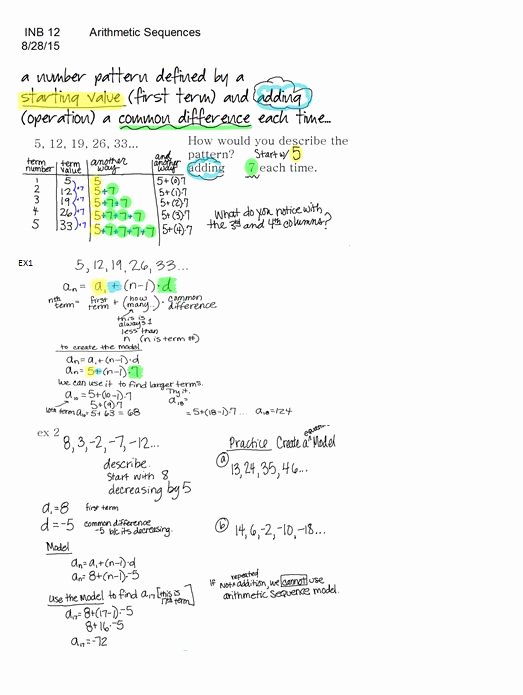 INB 12 Arithmetic Sequences
8/28/15
a number pattern defined by a
starting value (first term) and adding
(operation) a common difference each time...
5, 12, 19, 26, 33...
How would you describe the
pattern? Start w/ 5
adding 7 each time.
term number | term value | another way | and another way
1 5 5 5+(0)7
2 12 5+7 5+(1)·7
3 19 5+7+7 5+(2)·7
4 26 5+7+7+7 5+(3)·7
5 33 5+7+7+7+7 5+(4)·7
+7
+7
+7
+7
What do you notice with
the 3rd and 4th columns?
EX1
5, 12, 19, 26, 33...
an = a1 + (n-1)·d
nth term = first term + (how many..) · common difference
this is
always 1
less than
n (n is term #)
to create the model
an = a1+(n-1)·d
an = 5+(n-1)·7
we can use it to find larger terms.
a10 = 5+(10-1)·7
5+(9)·7
10th term a10 = 5+63 = 68
Try it.
a18 =
= 5+(18-1)·7... a18=124
ex 2
8, 3, -2, -7, -12...
describe.
Start with 8
decreasing by 5
a1=8 first term
d=-5 common difference
-5 b/c its decreasing.
Model
an=a1+(n-1)·d
an=8+(n-1)·-5
Use the Model to find a17 [this is 17th term]
a17=8+(17-1)·-5
8+16·-5
a17=-72
Practice Create a Model
a
13, 24, 35, 46...
b
14, 6, -2, -10, -18...
If not repeated addition, we cannot use
arithmetic sequence model.